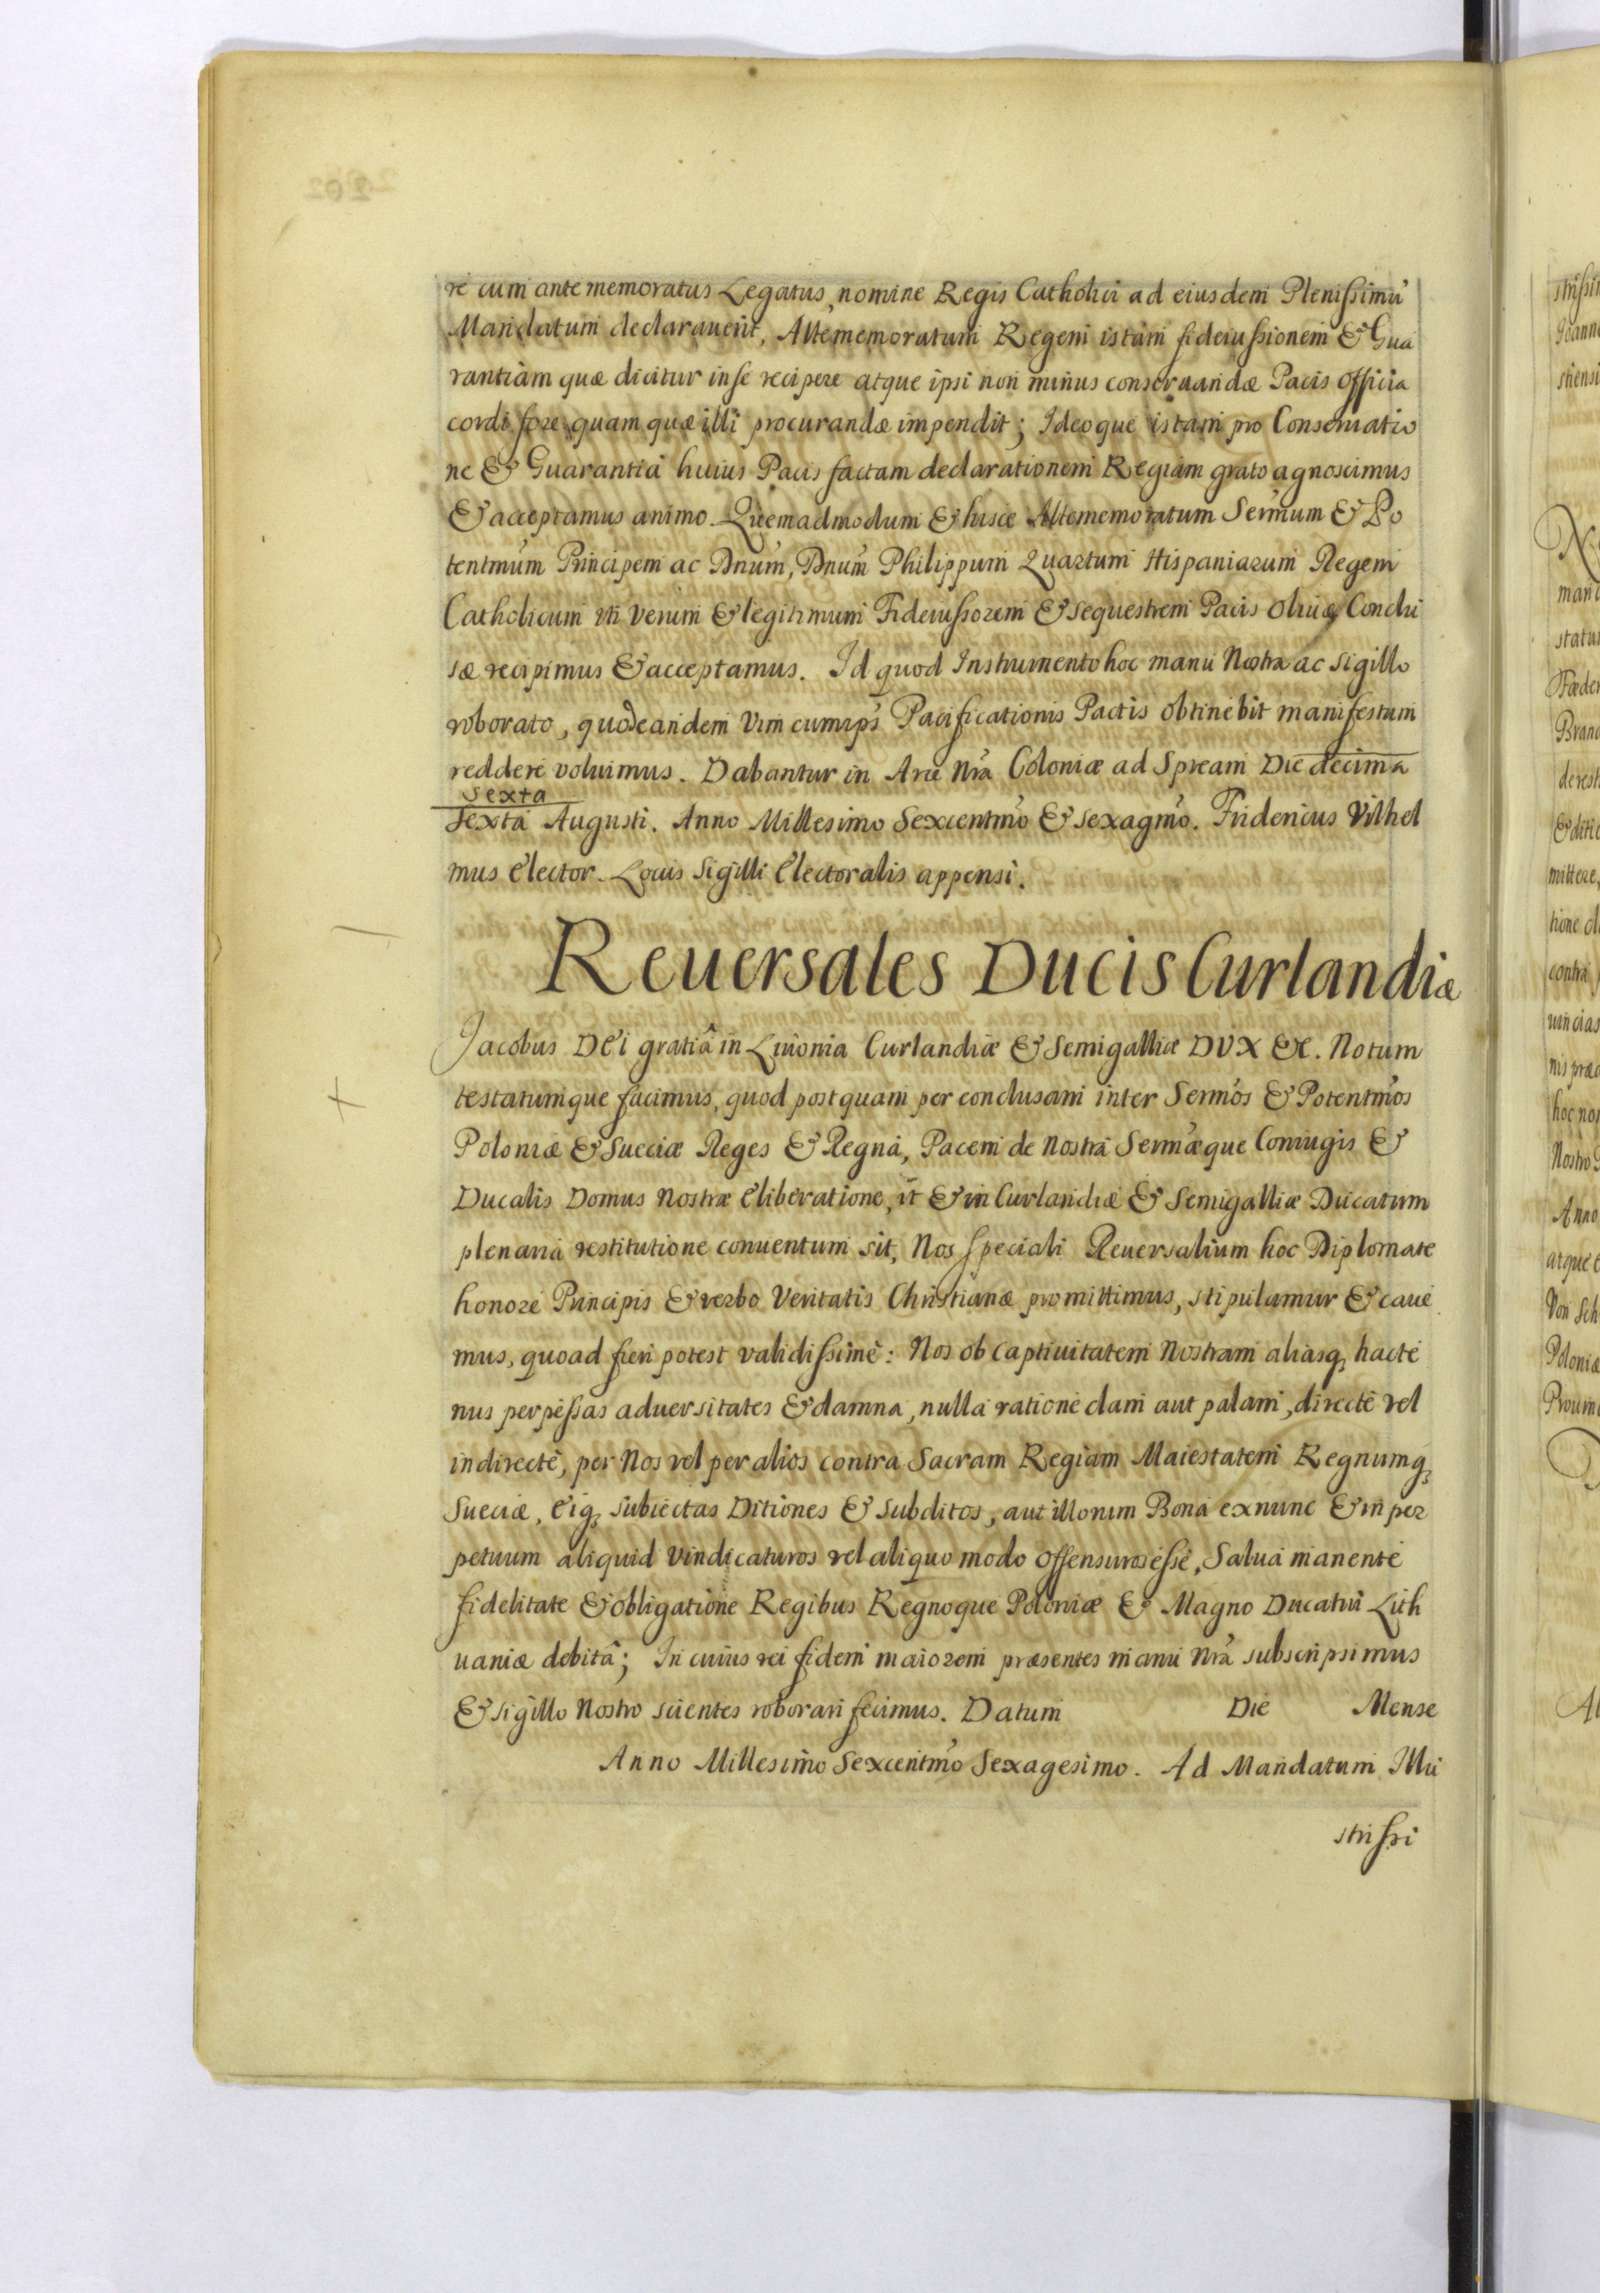 re cum ante memoratus Legatus, nomine Regis Catholici ad eiusdem Plenissimũ
Mandatum declarauerit, Altememoratum Regem istam fideiussionem & Gua
rantiam quæ dicitur in se recipere atque ipsi non minus conseruandæ Pacis officia
cordi fore, quam quæ illi procurandæ impendit; Ideoque istam pro Conseruatio
ne & Guarantia huius Pacis factam declarationem Regiam grato agnoscimus
& acceptamus animo. Quemadmodum & hisce Altememoratum Sermum & Po
tentmum Principem ac Dnum, Dnum Philippum Quartum Hispaniarum Regem
Catholicum uti verum & legitimum Fideiussorem & sequestrem Pacis Oliuæ Conclu
sæ recipimus & acceptamus. Id quod Instrumento hoc manu Nostra ac sigillo
roborato, quod eandem vim cum ips̃ Pacificationis Pactis obtinebit manifestum
reddere voluimus. Dabantur in Arce Nrã Coloniæ ad Spream Die decima
sexta
Sexta Augusti. Anno Millesimo Sexcentmo & sexagmo. Fridericus Vilhel
mus Elector. Locus Sigilli Electoralis appensi.
Reuersales Ducis Curlandiæ
Jacobus DEi gratiâ in Liuonia Curlandiæ & Semigalliæ DVX &c. Notum
testatumque facimus, quod postquam per conclusam inter Sermos & Potentmos
Poloniæ & Sueciæ Reges & Regna, Pacem de Nostra Sermæque Coniugis &
Ducalis Domus Nostræ Eliberatione, ut & in Curlandiæ & Semigalliæ Ducatum
plenaria restitutione conuentum sit, Nos speciali Reuersalium hoc Diplomate
honore Principis & verbo Veritatis Christianæ promittimus, stipulamur & caue
mus, quoad fieri potest validissimè: Nos ob captiuitatem Nostram aliasq; hacte
nus perpessas aduersitates & damna, nulla ratione clam aut palam, directè vel
indirectè, per Nos vel per alios contra Sacram Regiam Maiestatem Regnumq;
Sueciæ, eiq; subiectas Ditiones & subditos, aut illorum Bona ex nunc & in per
petuum aliquid vindicaturos vel aliquo modo offensuros esse, Salua manente
fidelitate & obligatione Regibus Regnoque Poloniæ & Magno Ducatui Lith
uaniæ debitâ; In cuius rei fidem maiorem præsentes manu Nrã subscripsimus
& sigillo Nostro scientes roborari fecimus. Datum Die Mense
Anno Millesimo Sexcentmo Sexagesimo. Ad Mandatum Illu
strissi